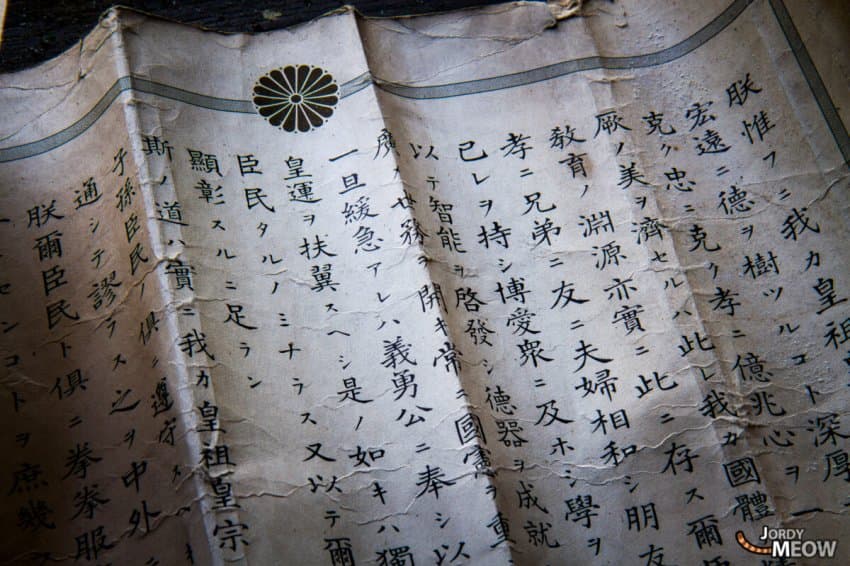 朕惟フニ我カ皇祖
宏遠ニ德ヲ樹ツルコト深厚
克ク忠ニ克ク孝ニ億兆心ヲ一
厥ノ美ヲ濟セルハ此レ我カ國體
敎育ノ淵源亦實ニ此ニ存ス爾
孝ニ兄弟ニ友ニ夫婦相和シ朋友
己レヲ持シ博愛衆ニ及ホシ學ヲ
以テ智能ヲ啓發シ德器ヲ成就
廣メ世務ヲ開キ常ニ國憲ヲ重
一旦緩急アレハ義勇公ニ奉シ以
皇運ヲ扶翼スヘシ是ノ如キハ獨
臣民タルノミナラス又以テ爾
顯彰スルニ足ラン
斯ノ道ハ實ニ我カ皇祖皇宗
子孫臣民ノ俱ニ遵守スヘキ
通シテ謬ラス之ヲ中外
朕爾臣民ト俱ニ拳拳服
センコトヲ庶幾フ
JORDY
MEOW